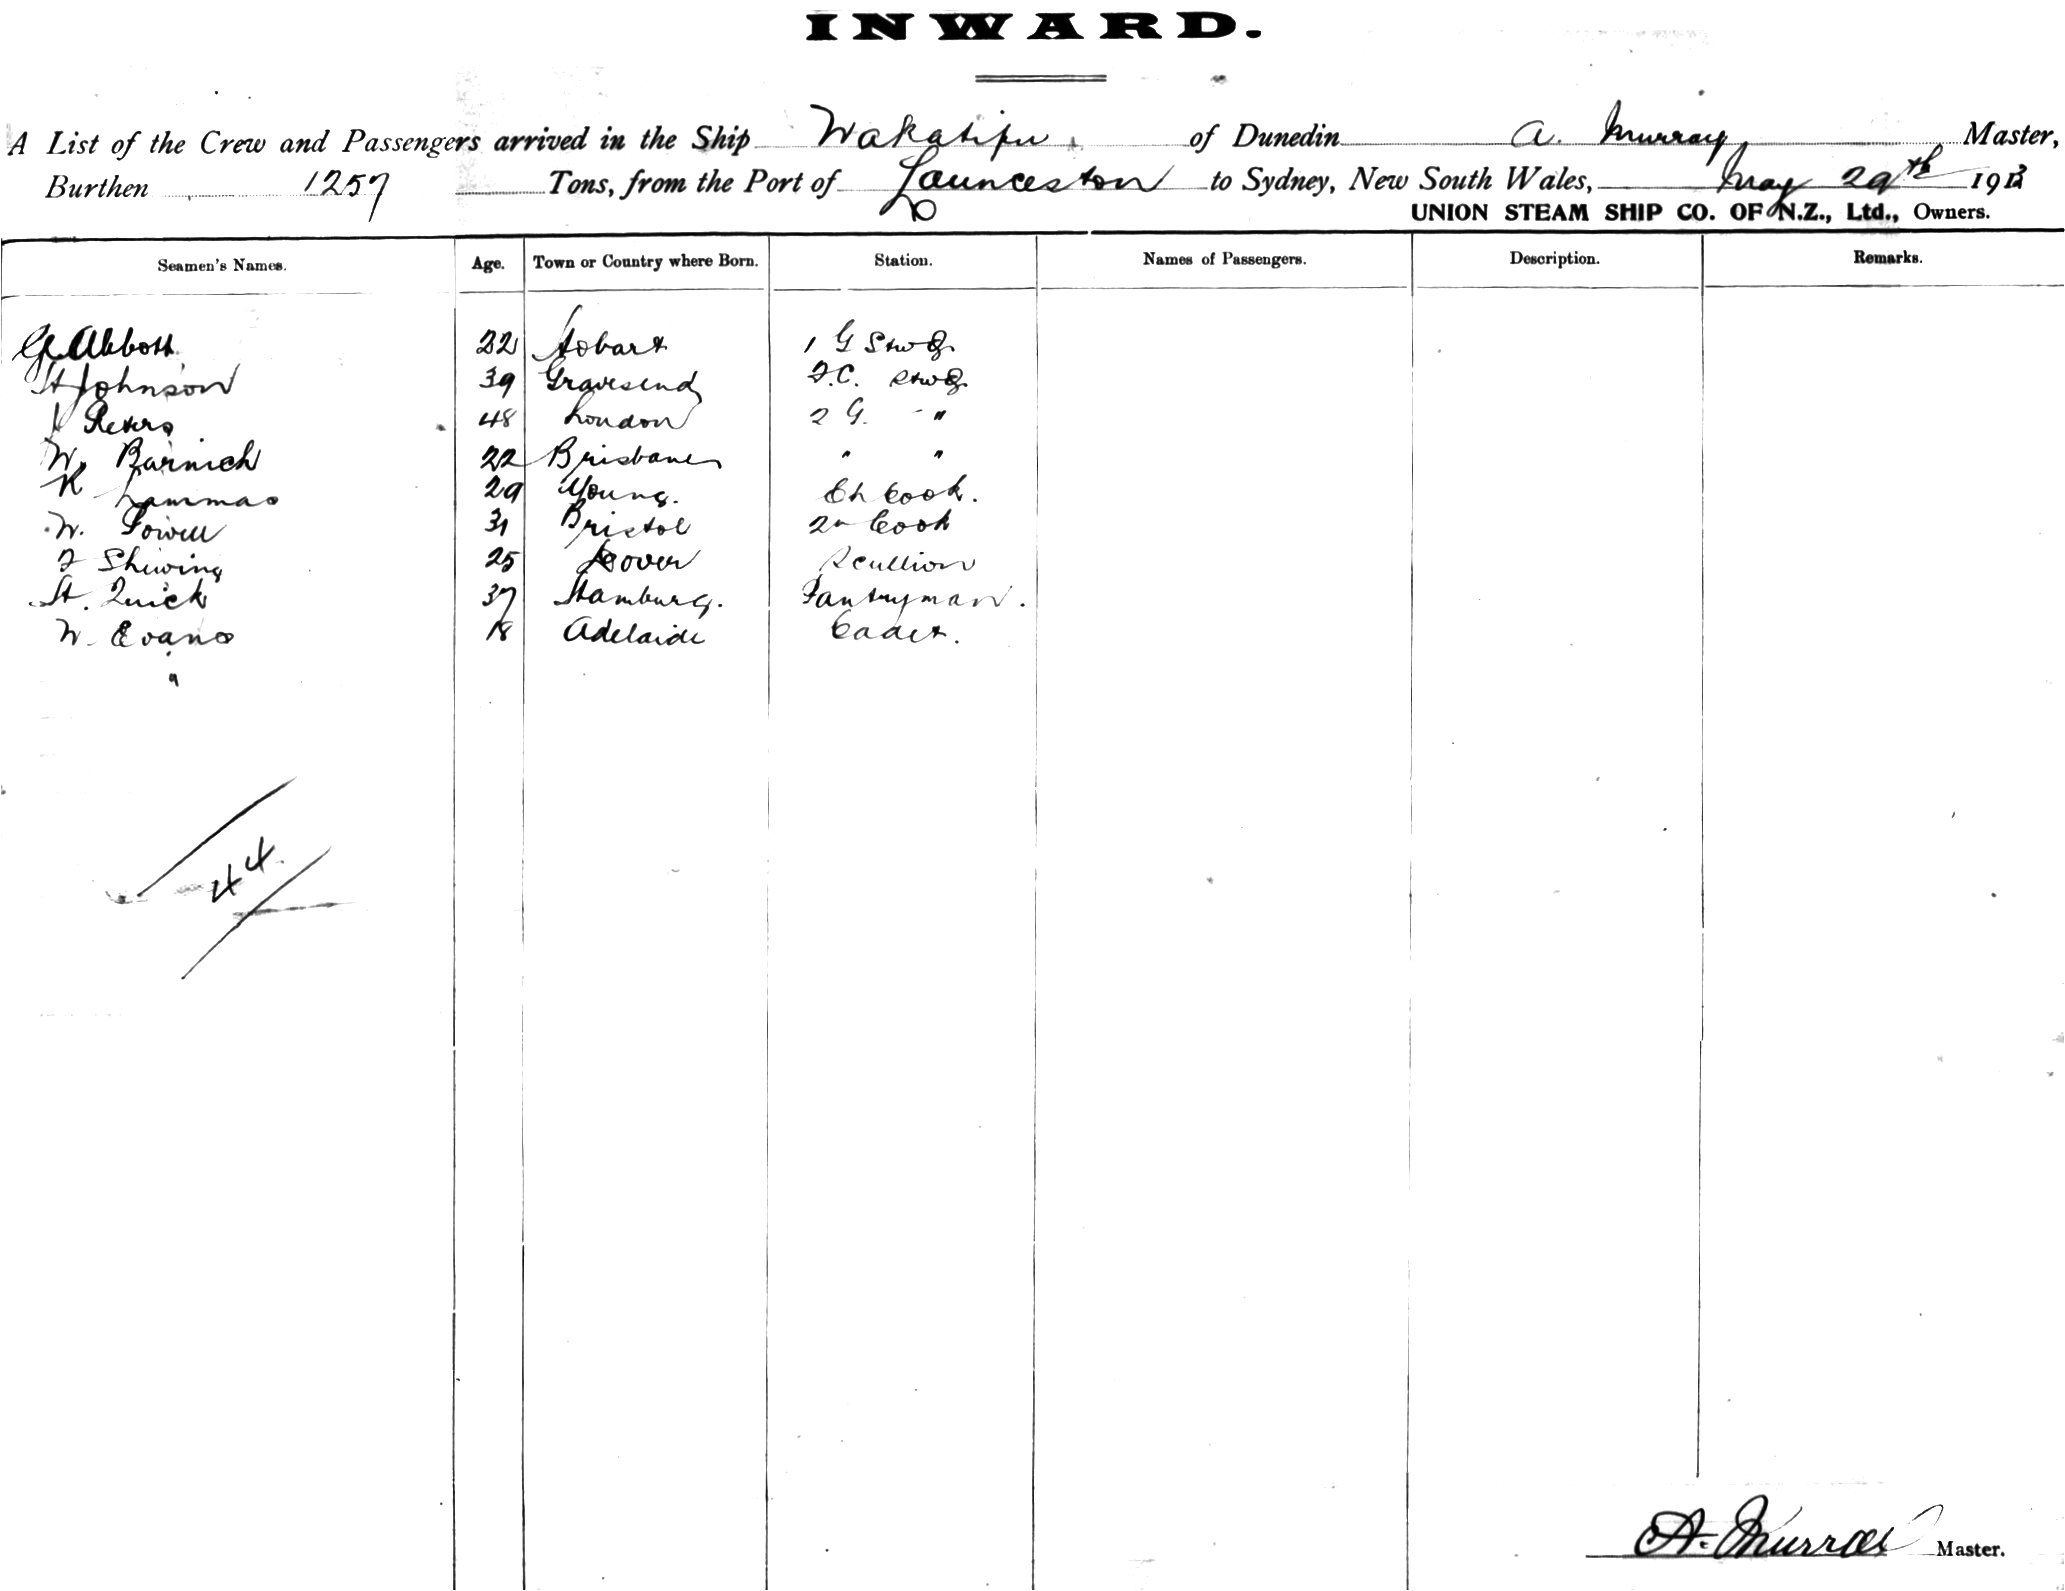 INWARD.
A List of the Crew and Passengers arrived in the Ship Wakatipu of Dunedin A. Murray Master,
Burthen 1257 Tons, from the Port of Launceston to Sydney, New South Wales, May 29th 1913
UNION STEAM SHIP CO. OF N.Z., Ltd., Owners.
Seamen's Names. Age. Town or Country where Born. Station. Names of Passengers. Description. Remarks.
G Abbott 22 Hobart 1 G Stwd
H Johnson 39 Gravesend F.C. Stwd
J Peters 48 London 2 G. "
W. Barnich 22 Brisbane " "
K Lammas 29 Young. Ch Cook.
W. Powell 31 Bristol 2n Cook
F Shewing 25 Dover Scullion
H. Quick 37 Hamburg. Pantryman.
W. Evans 18 Adelaide Cadet.
44.
A. Murray Master.